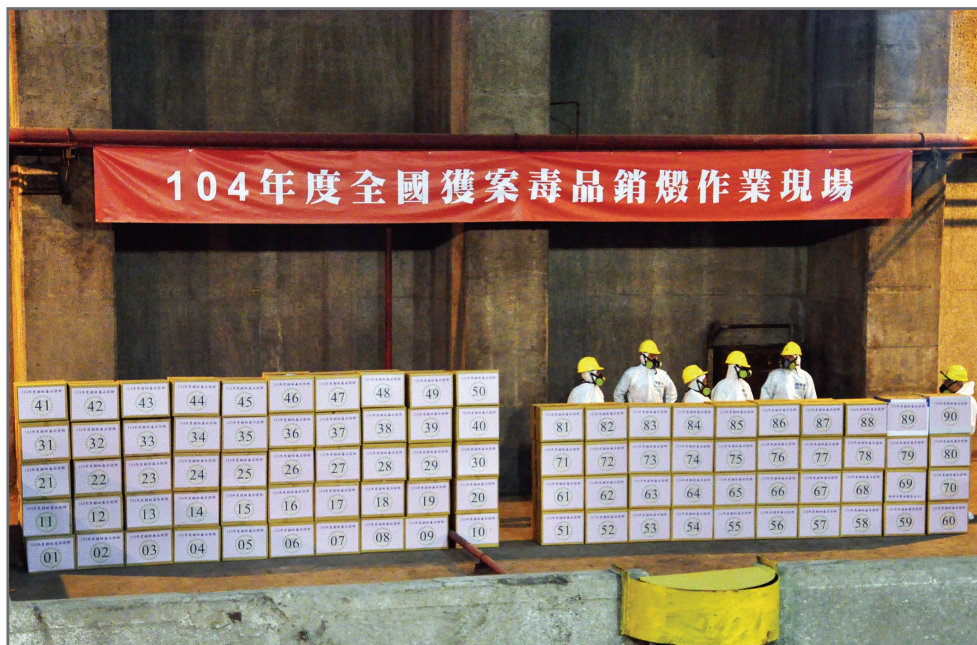 104年度全國獲案毒品銷燬作業現場
41 42 43 44 45 46 47 48 49 50
31 32 33 34 35 36 37 38 39 40
21 22 23 24 25 26 27 28 29 30
11 12 13 14 15 16 17 18 19 20
01 02 03 04 05 06 07 08 09 10
81 82 83 84 85 86 87 88 89 90
71 72 73 74 75 76 77 78 79 80
61 62 63 64 65 66 67 68 69 70
51 52 53 54 55 56 57 58 59 60